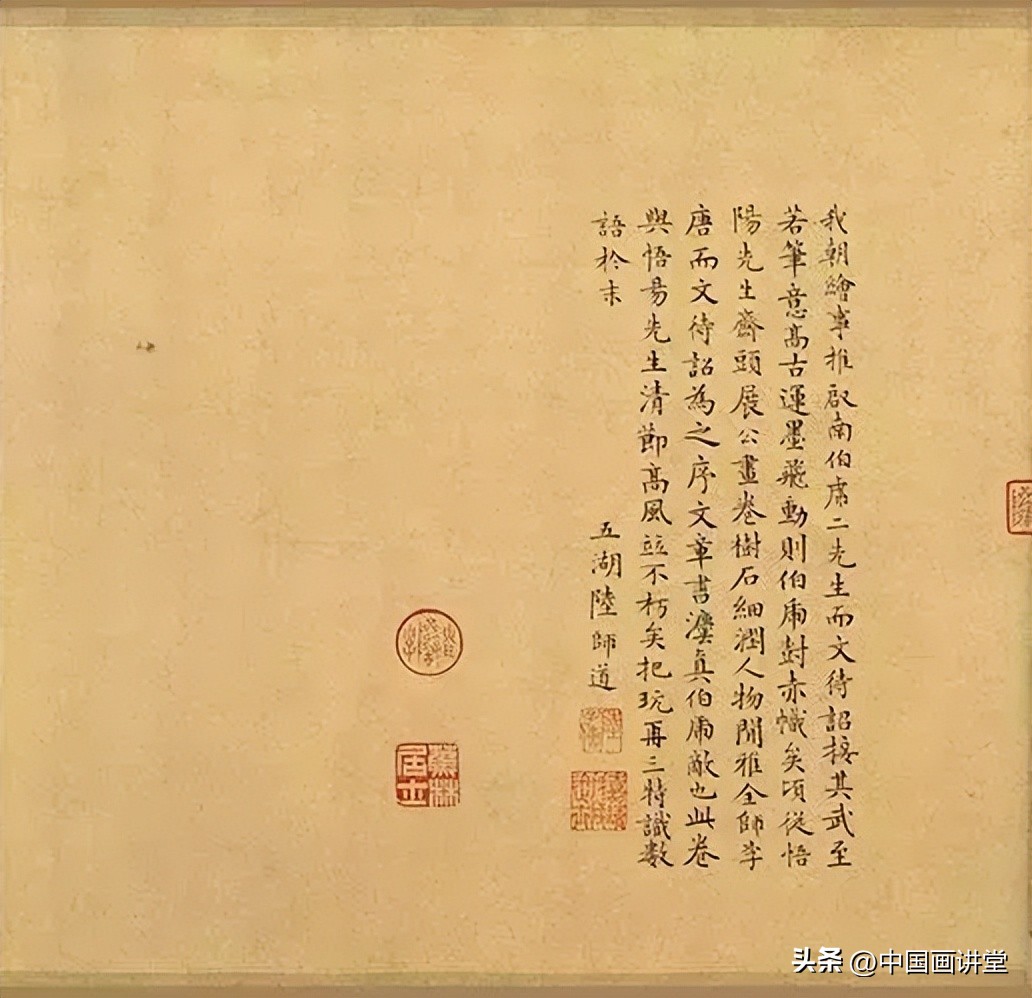 我朝繪事推啟南伯虎二先生而文待詔接其武至
若筆意高古運墨飛動則伯虎封赤幟矣頃從悟
陽先生齋頭展公畫卷樹石細潤人物閒雅全師李
唐而文待詔為之序文章書灋真伯虎敵也此卷
與悟昜先生清節高風並不朽矣把玩再三特識數
語於末
五湖陸師道
蕉林
居士
头条 @中国画讲堂